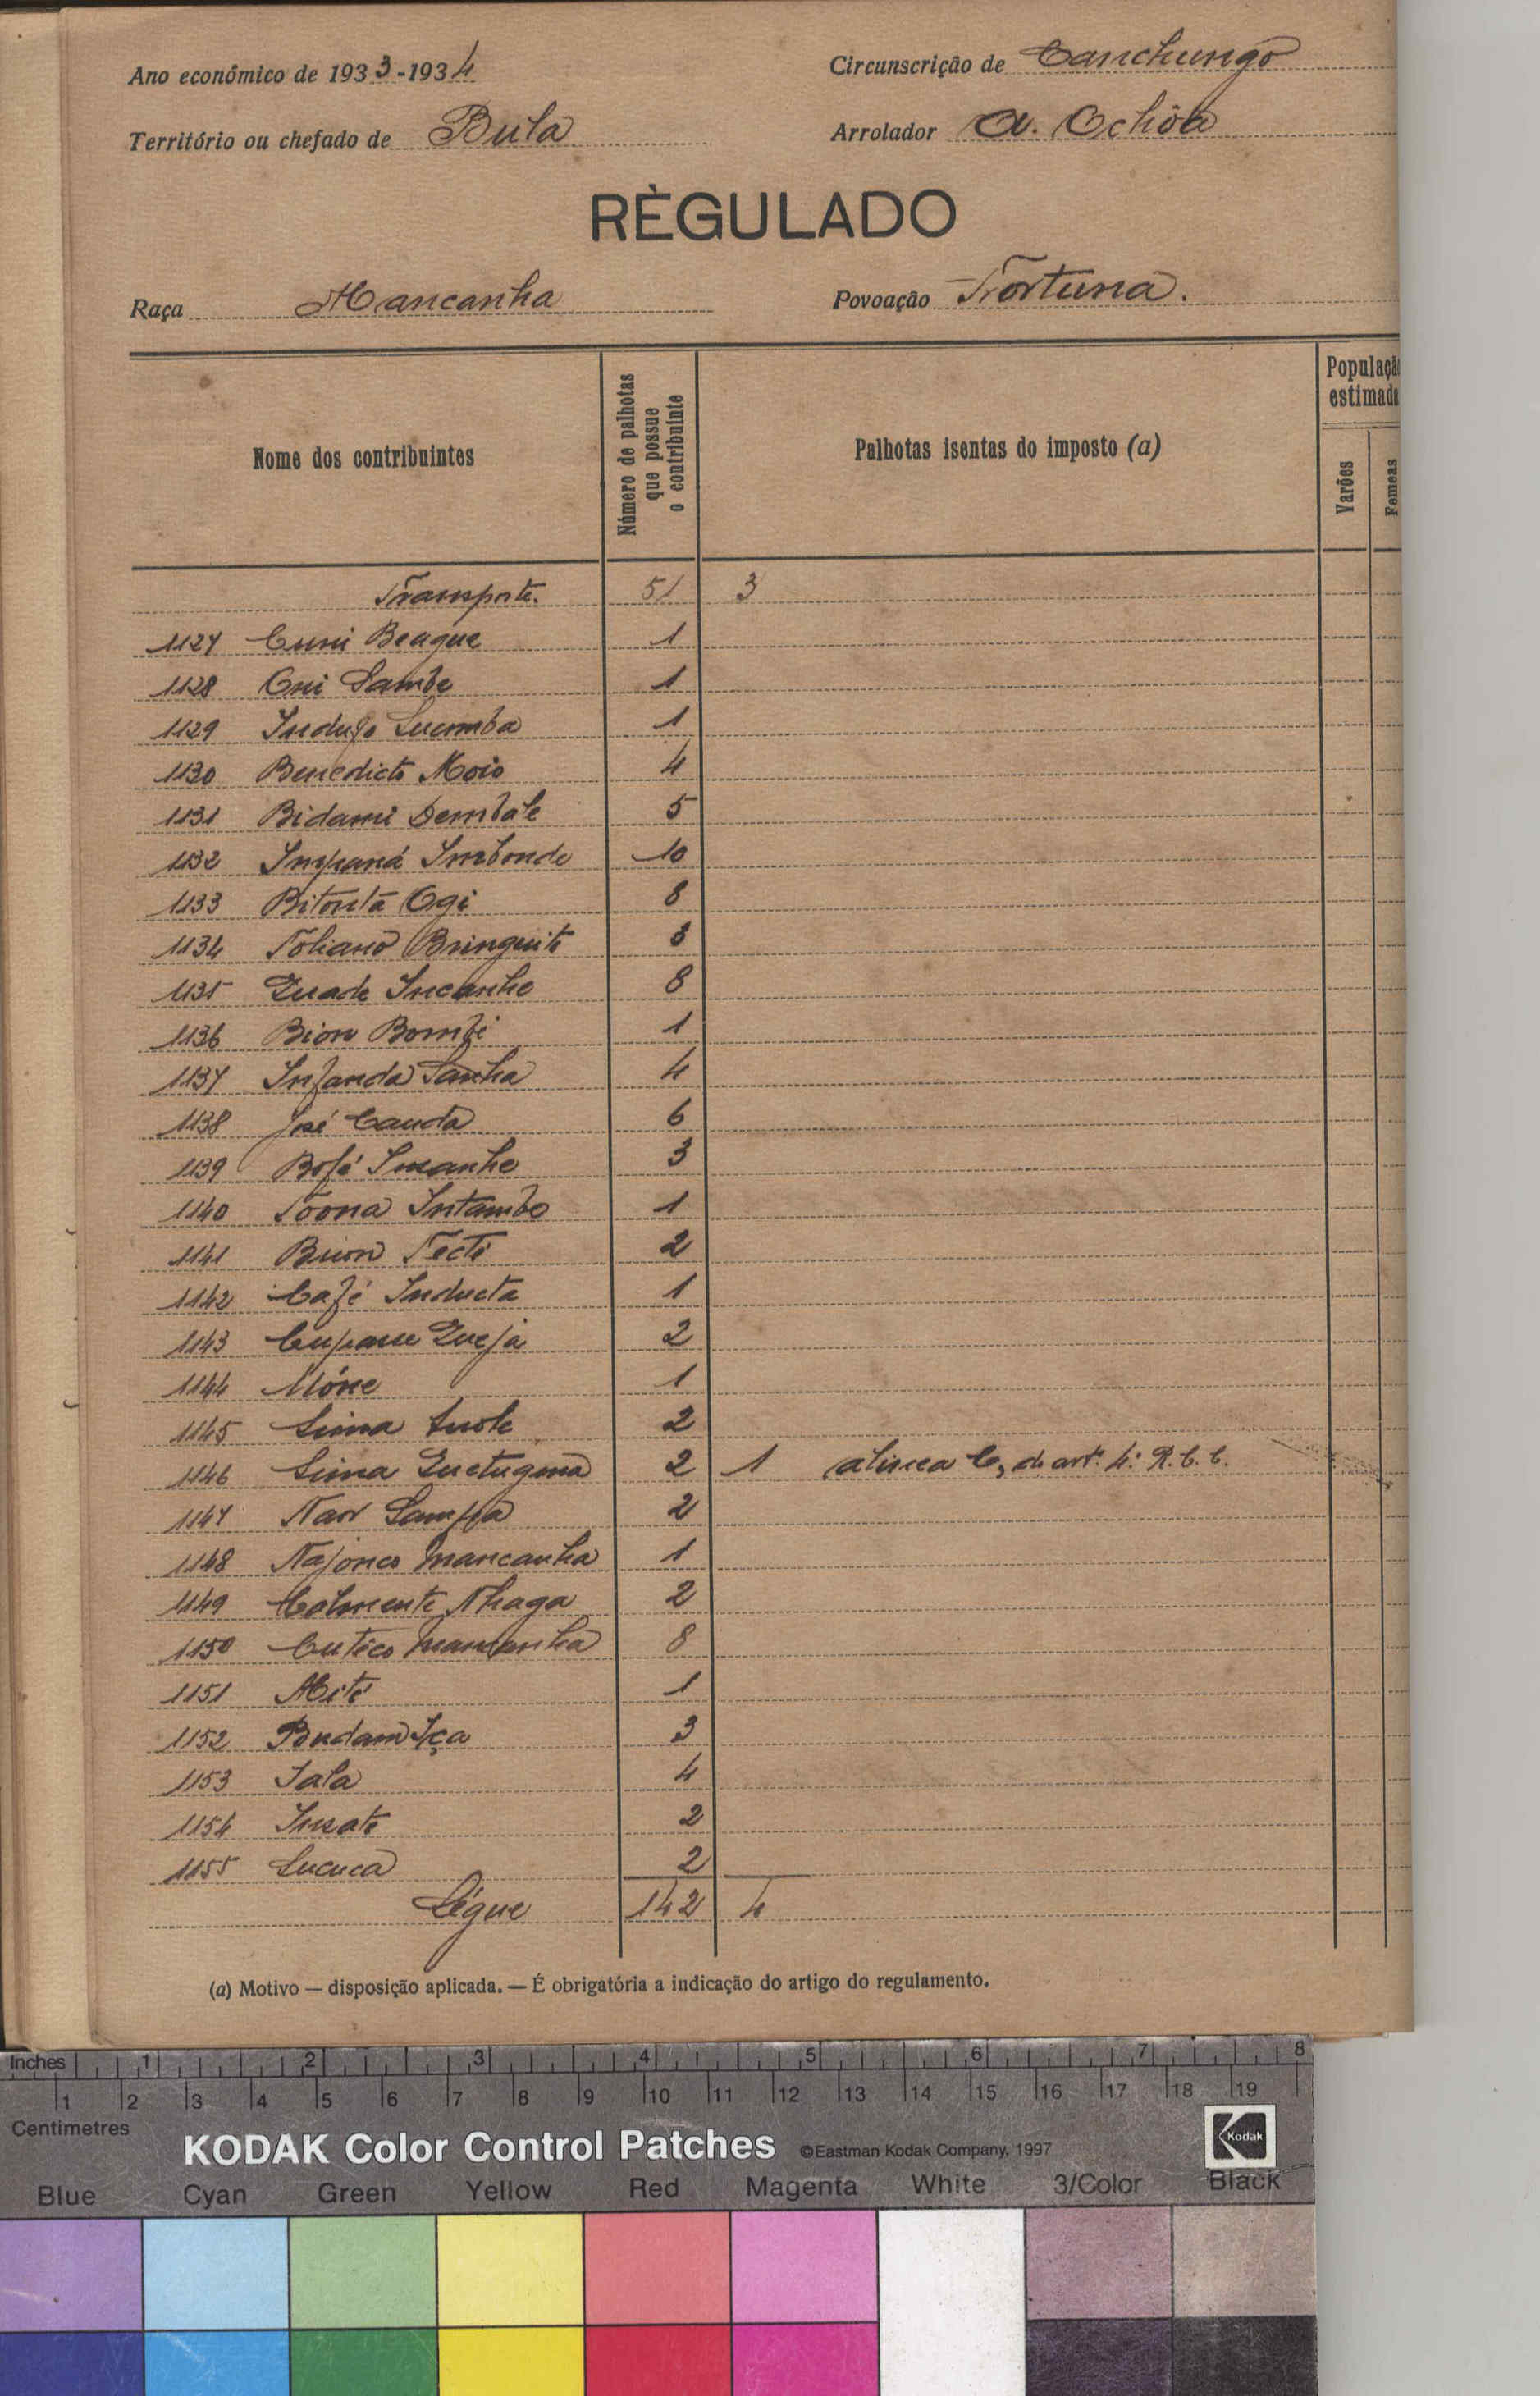 Ano económico de 1933-1934
Circunscrição de Canchungo
Território ou chefado de Bula
Arrolador A. Ochôa
RÈGULADO
Raça Mancanha
Povoação Fortuna.
Nome dos contribuintes
Número de palhotas que possue o contribuinte
Palhotas isentas do imposto (a)
Populaçã estimada
Varões
Femeas
Transporte. 51 3
1127 Cumi Beague 1
1128 Oni Sambe 1
1129 Indufo Lucumba 1
1130 Benedicto Moio 4
1131 Bidami Dembale 5
1132 Impaná Imbonde 10
1133 Bitontá Ogi 8
1134 Toliano Bringuite 8
1135 Quade Incanhe 8
1136 Bion Bombi 1
1137 Infanda Sanha 4
1138 José Cauda 6
1139 Bofé 3
1140 Toona Intambo 1
1141 Buon Tecti 2
1142 Café Inducta 1
1143 Cupane Queja 2
1144 Móne 1
1145 Lima 2
1146 Lima 2 1 alinea C, do artº 4º R. C. C.
1147 Nar Sampa 2
1148 Najonco Mancanha 1
1149 Colmente Nhaga 2
1150 Cuteco Mancanha 8
1151 Mité 1
1152 Budam Iça 3
1153 Sala 4
1154 2
1155 Lucuca 2
Ségue 142 4
(a) Motivo — disposição aplicada. — É obrigatória a indicação do artigo do regulamento.
Inches 1 2 3 4 5 6 7 8
1 2 3 4 5 6 7 8 9 10 11 12 13 14 15 16 17 18 19
Centimetres
KODAK Color Control Patches ©Eastman Kodak Company, 1997 Kodak
Blue Cyan Green Yellow Red Magenta White 3/Color Black